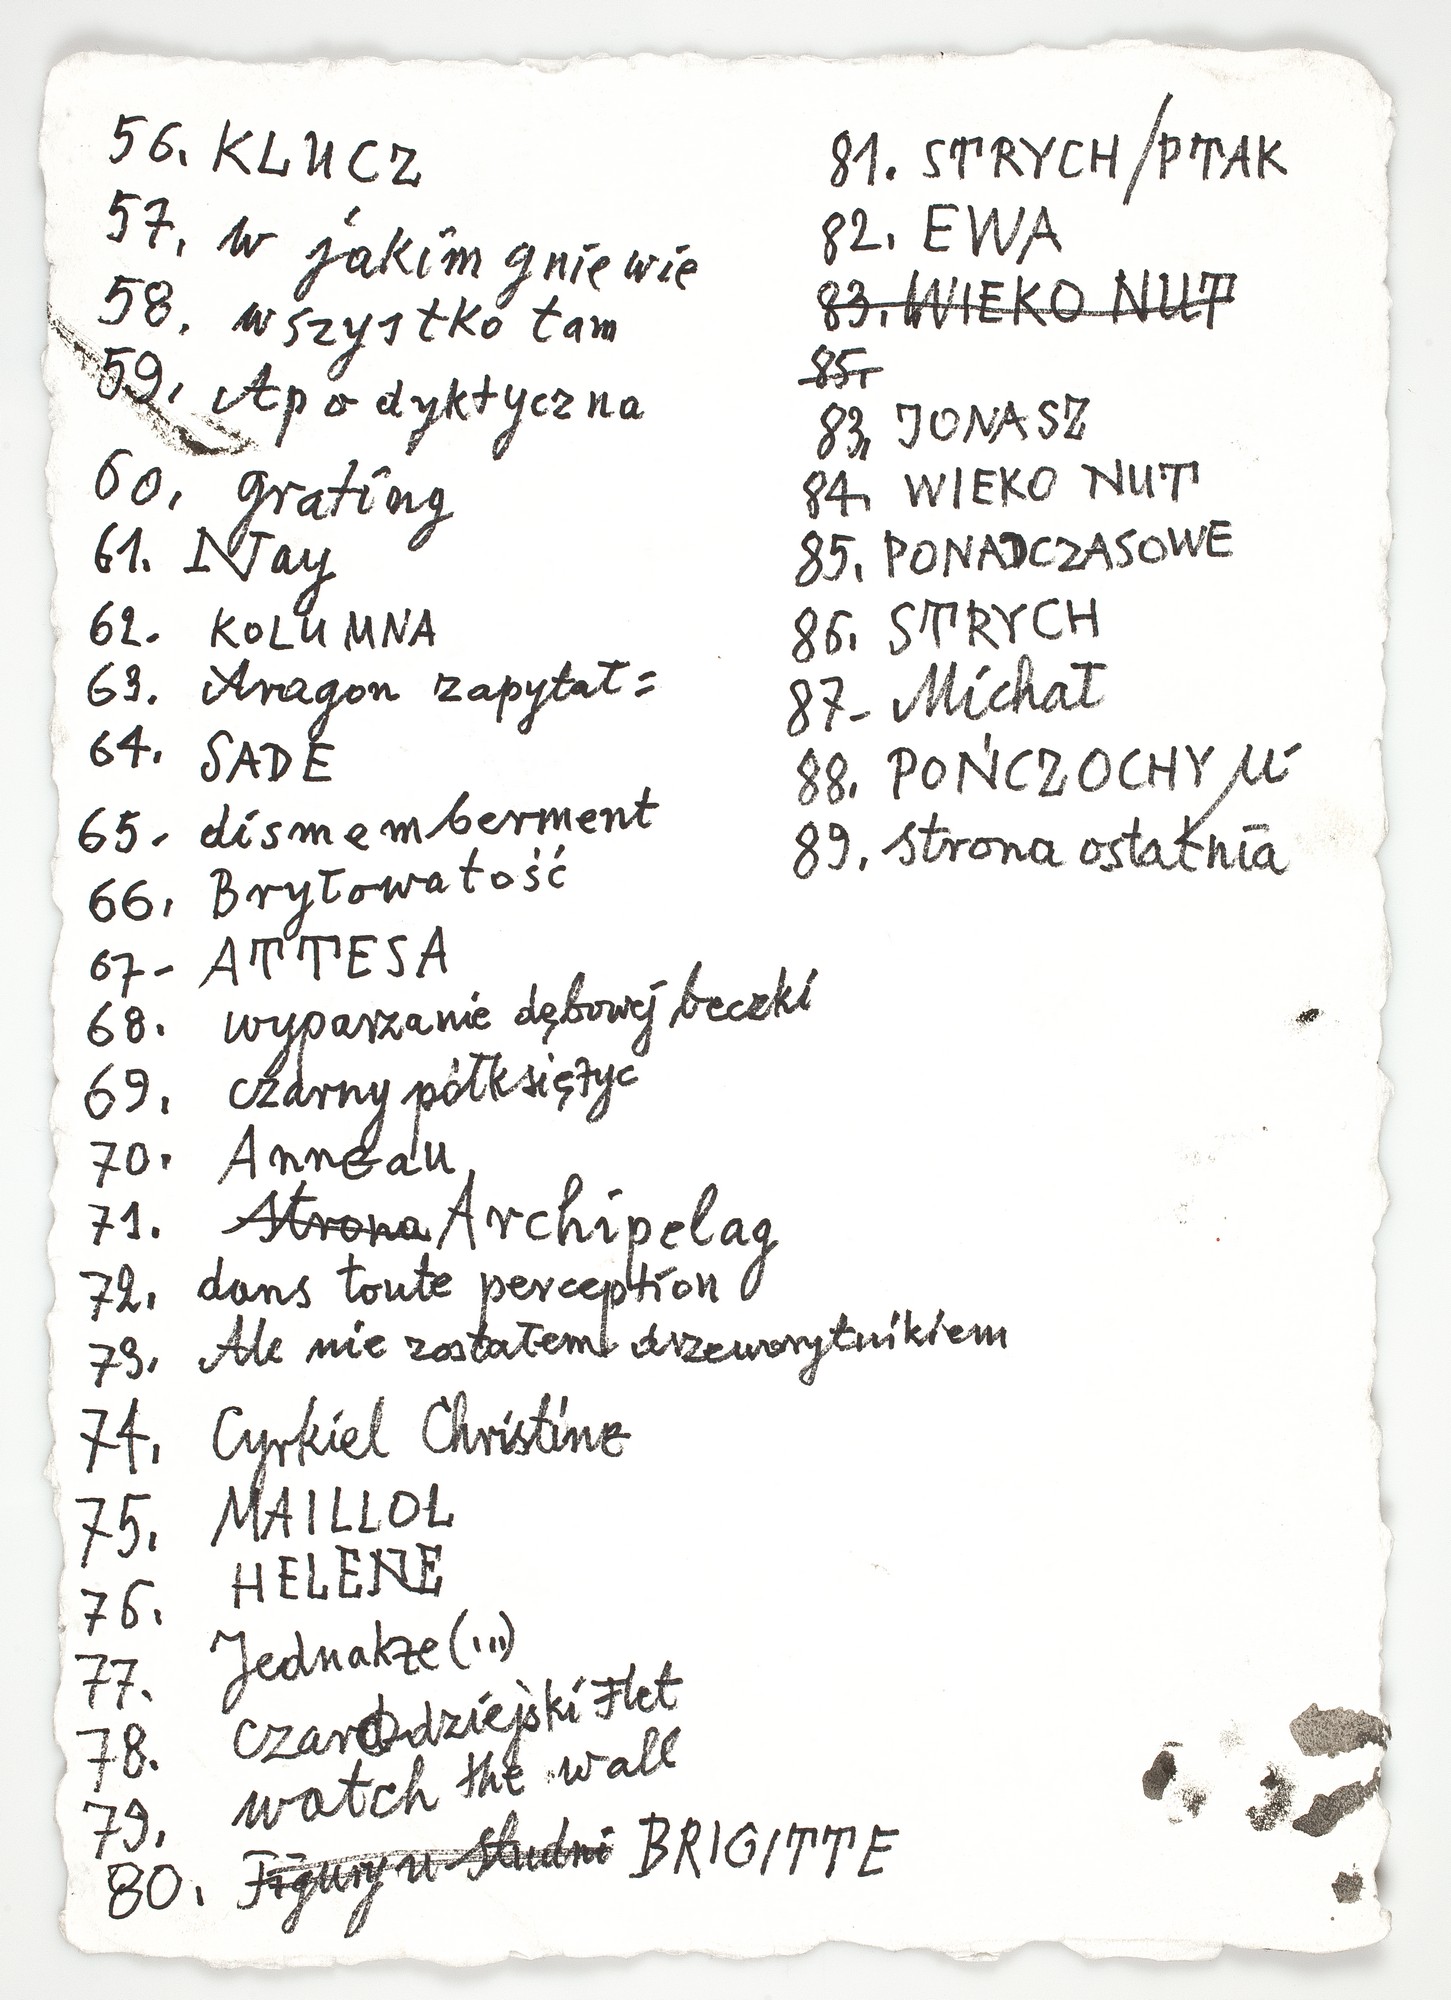 56. KLUCZ
57. w jakim gniewie
58. wszystko tam
59. Apodyktyczna
60. grating
61. NJay
62. KOLUMNA
63. Aragon zapytał=
64. SADE
65. dismemberment
66. Bryłowatość
67- ATTESA
68. wyparzanie dębowej beczki
69. czarny półksiężyc
70. Anneau
71. Strona Archipelag
72. dans toute perception
73. Ale nie zostałem drzeworytnikiem
74. Cyrkiel Christine
75. MAILLOL
76. HELENE
77. Jednakże (...)
78. czarodziejski Flet
79. watch the wall
80. Figury u studni BRIGITTE
81. STRYCH/PTAK
82. EWA
83. WIEKO NUT
85.
83. JONASZ
84. WIEKO NUT
85. PONADCZASOWE
86. STRYCH
87- Michał
88. POŃCZOCHY
89. strona ostatnia